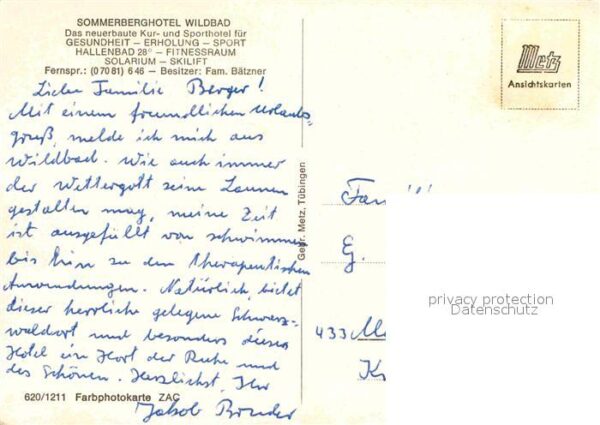 SOMMERBERGHOTEL WILDBAD
Das neuerbaute Kur- und Sporthotel für
GESUNDHEIT – ERHOLUNG – SPORT
HALLENBAD 28° – FITNESSRAUM
SOLARIUM – SKILIFT
Fernspr.: (07081) 646 – Besitzer: Fam. Bätzner
Liebe Familie Berger!
Mit einem freundlichen Urlaubs-
gruß, melde ich mich aus
Wildbad. Wie auch immer
der Wettergott seine Launen
gestalten mag, meine Zeit
ist ausgefüllt von schwimmen
bis hin zu den therapeutischen
Anwendungen. Natürlich, bietet
dieser herrliche gelegene Schwarz-
waldort und besonders dieses
Hotel ein Hort der Ruhe und
des Schönen. Herzlichst, Ihr
Jakob
620/1211 Farbphotokarte ZAC
Gebr. Metz, Tübingen
Metz
Ansichtskarten
Fam
G.
433 M
K
privacy protection
Datenschutz